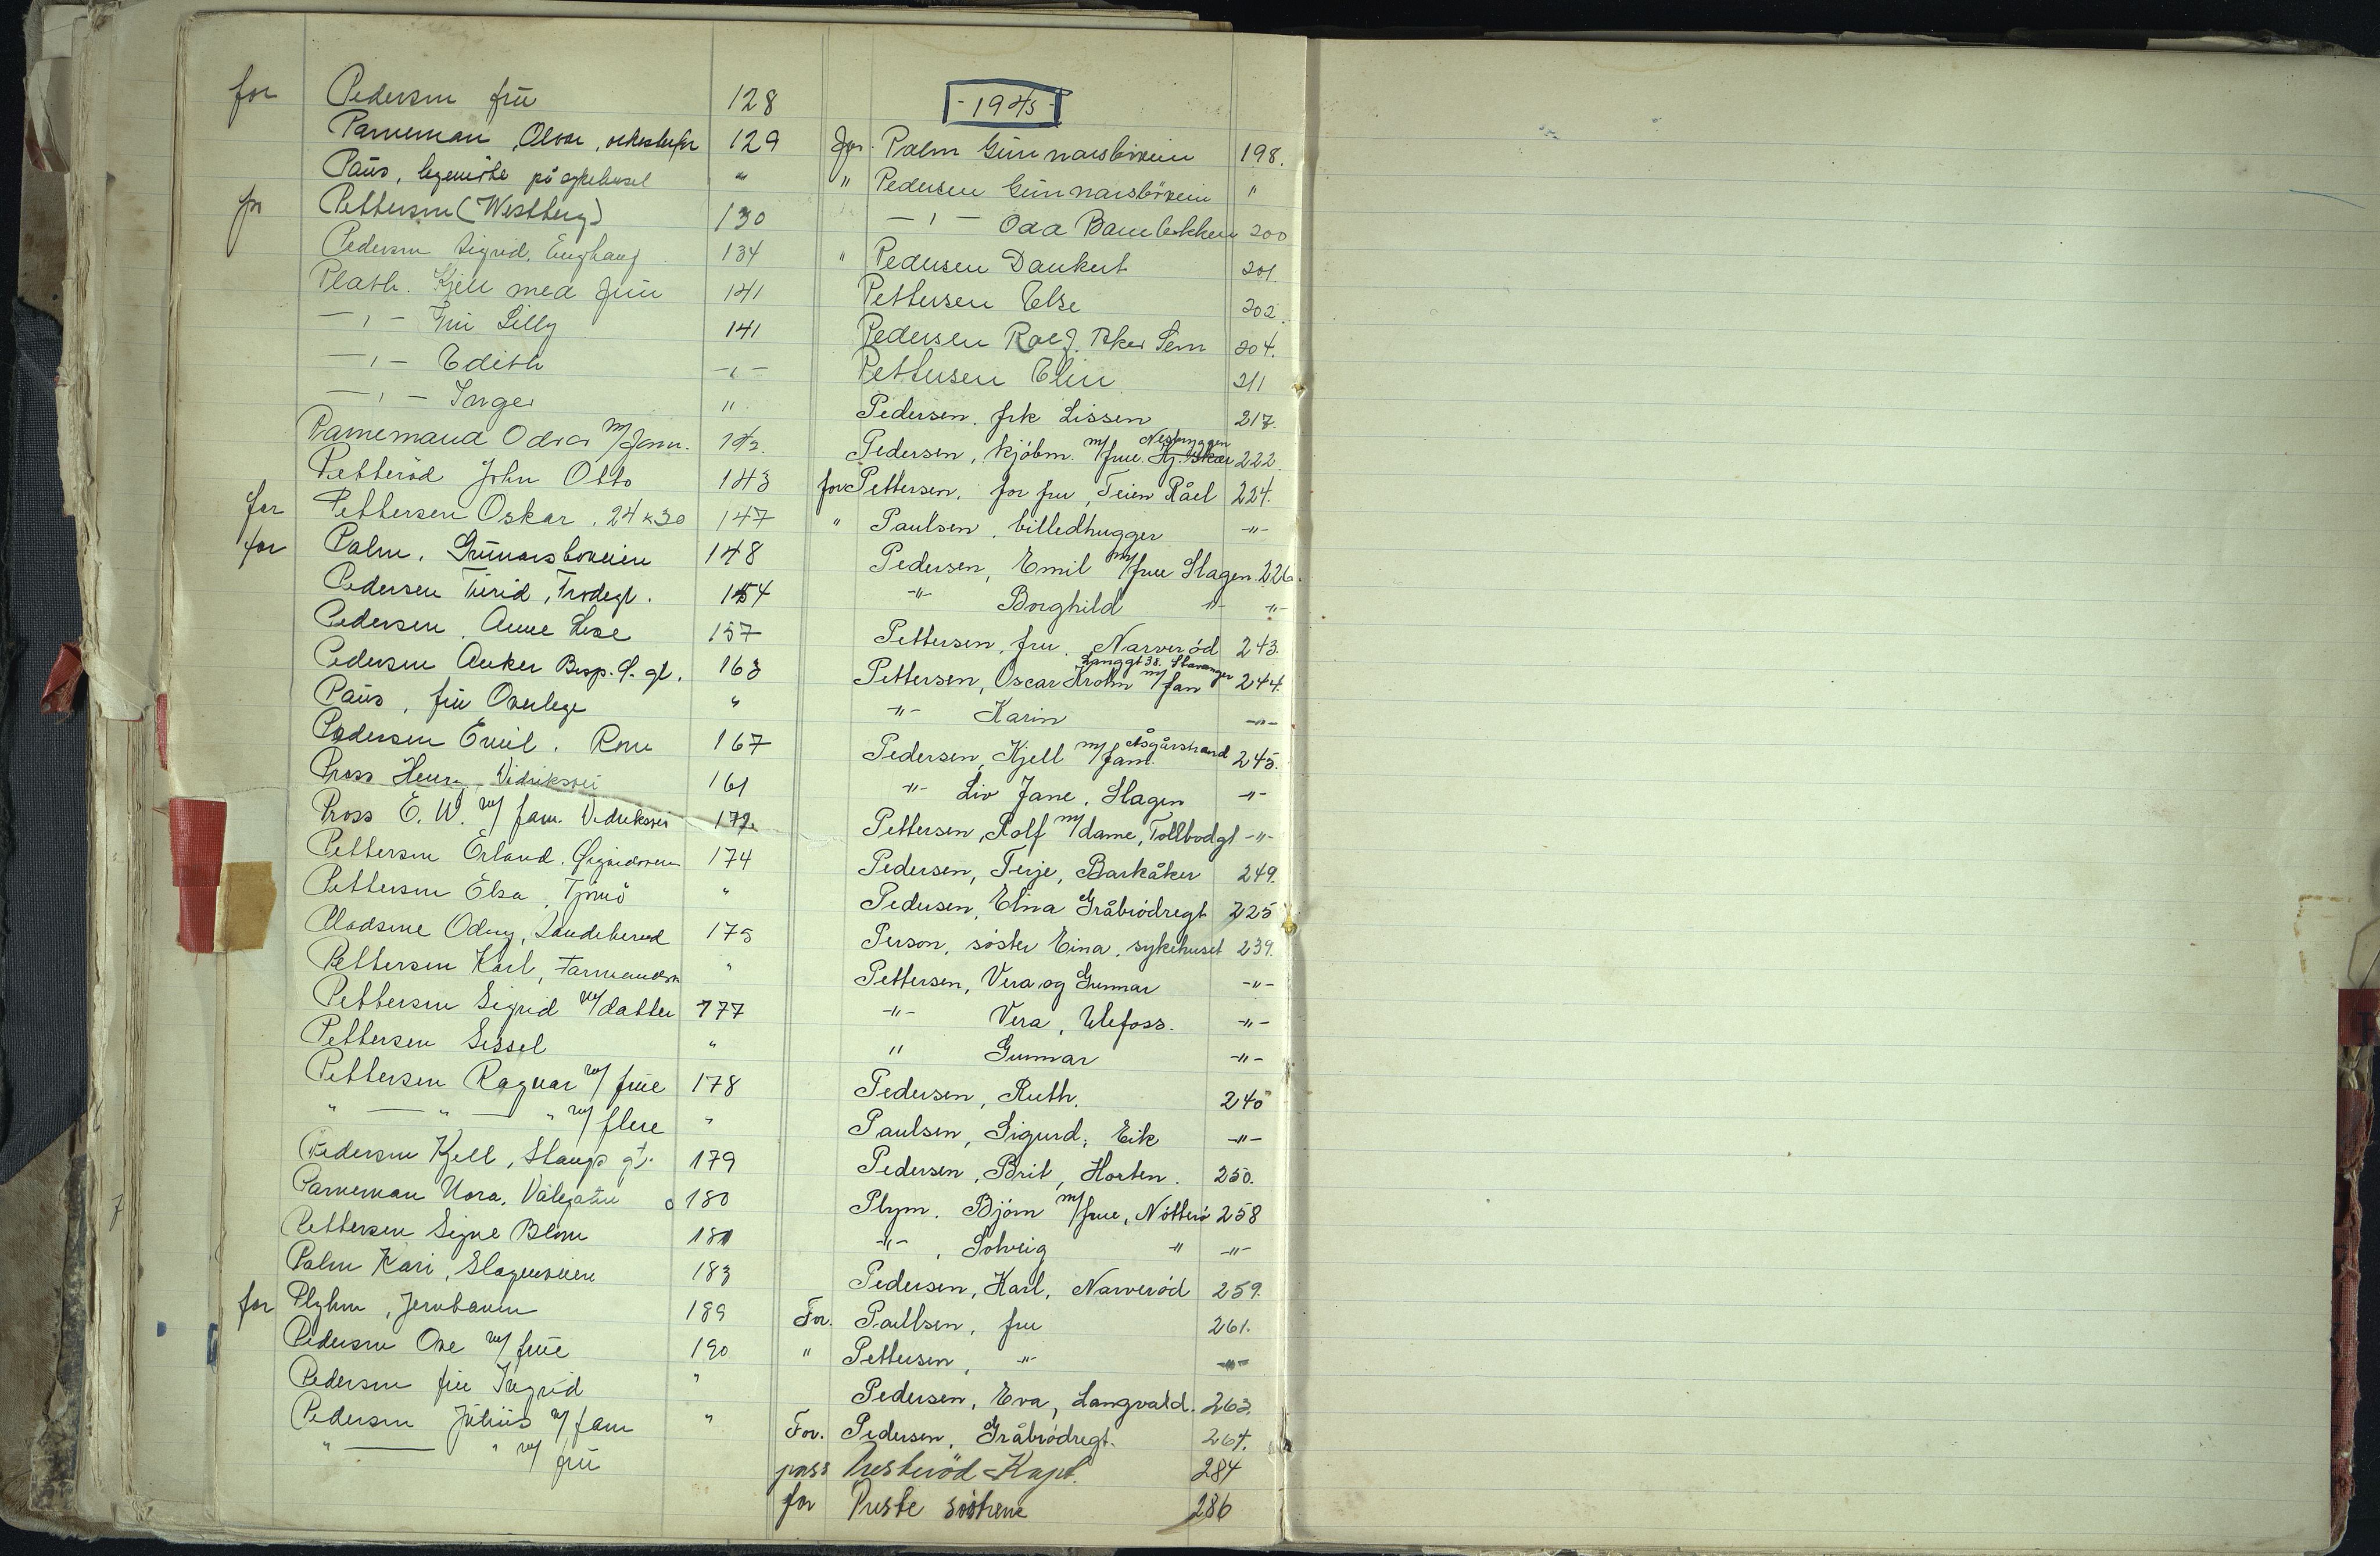 for Pedersen frü 128
Parneman, Olvar, 129
Paüs, på sykehuset "
for Pettersen (Westberg) 130
Pedersen Sigrid, Enghaug 134
Plath. Kjell med frue 141
—"— Frü Lilly 141
—"— Edith —"—
—"— Inger "
Parnemand Odvar m/fam. 142.
Petteröd John Otto 143
for Pettersen Oskar. 24x30 147
for Palm. Günnarsboveien 148
Pedersen Turid, 154
Pedersen, Anne Lise 157
Pedersen Anker Bisp. 163
Paüs, frü Overlege "
Pedersen Emil. Rom 167
Pross Henry, Vidriksvei 161
Pross E. W. m/ fam. Vidriksvei 172
Pettersen Erland. 174
Pettersen Elsa, Tjömö "
Odny, 175
Pettersen Karl, "
Pettersen Sigrid m/datter 177
Pettersen Sissel "
Pettersen Ragnar m/ frue 178
" — " — " m/ flere "
Pedersen Kjell, gt. 179
Parneman Nora, 180
Pettersen Signe Blom 181
Palm Kari, Slagenveien 183
for Plyhm, Jernbanen 189
Pedersen Ove m/ frue 190
Pedersen frü Ingrid "
Pedersen Jülius m/ fam "
" — " m/ frü
-1945-
For Palm Günnarsboveien 198.
" Pedersen Günnarsboveien "
—"— Oda Barnebekken 200
" Pedersen Dankert 201.
Pettersen Else 202.
Pedersen Sem 204.
Pettersen Elin 211
Pedersen. frk Lissen 217.
Nesbryggen
Pedersen, kjöbm. m/frue. 222.
for Pettersen. for fru, Teien Råel 224.
" Paulsen, billedhugger —"—
Pedersen, Emil m/frue Slagen. 226.
—"— Borghild —"— —"—
Pettersen, fru. Narveröd 243.
Langgt 38. Stavanger
Pettersen, Oscar Krohn m/fam 244.
—"— Karin —"—
Åsgårstrand
Pedersen, Kjell m/fam. 245.
—"— Liv Jane, Slagen —"—
Pettersen, Rolf m/dame, Tollbodgt —"—
Pedersen, Terje, Barkåker 249.
Pedersen, Elna Gråbrödregt 225
Person, söster Eina, sykehuset 239.
Pettersen, Vera og Gunnar —"—
—"— Vera, Ulefoss. —"—
" Gunnar —"—
Pedersen, Ruth. 240
Paulsen, Sigurd, Eik —"—
Pedersen, Brit, Horten. 250.
Plym. Björn m/frue, Nötterö 258
—"—, Solveig —"— —"—
Pedersen, Karl, Narveröd 259.
For. Paulsen, fru 261.
" Pettersen, —"— —"—
Pedersen, Eva, Langvald. 263.
For. Pedersen, Gråbrödregt. 264.
pass Presteröd Kapt. 284
for Preste söstrene 286